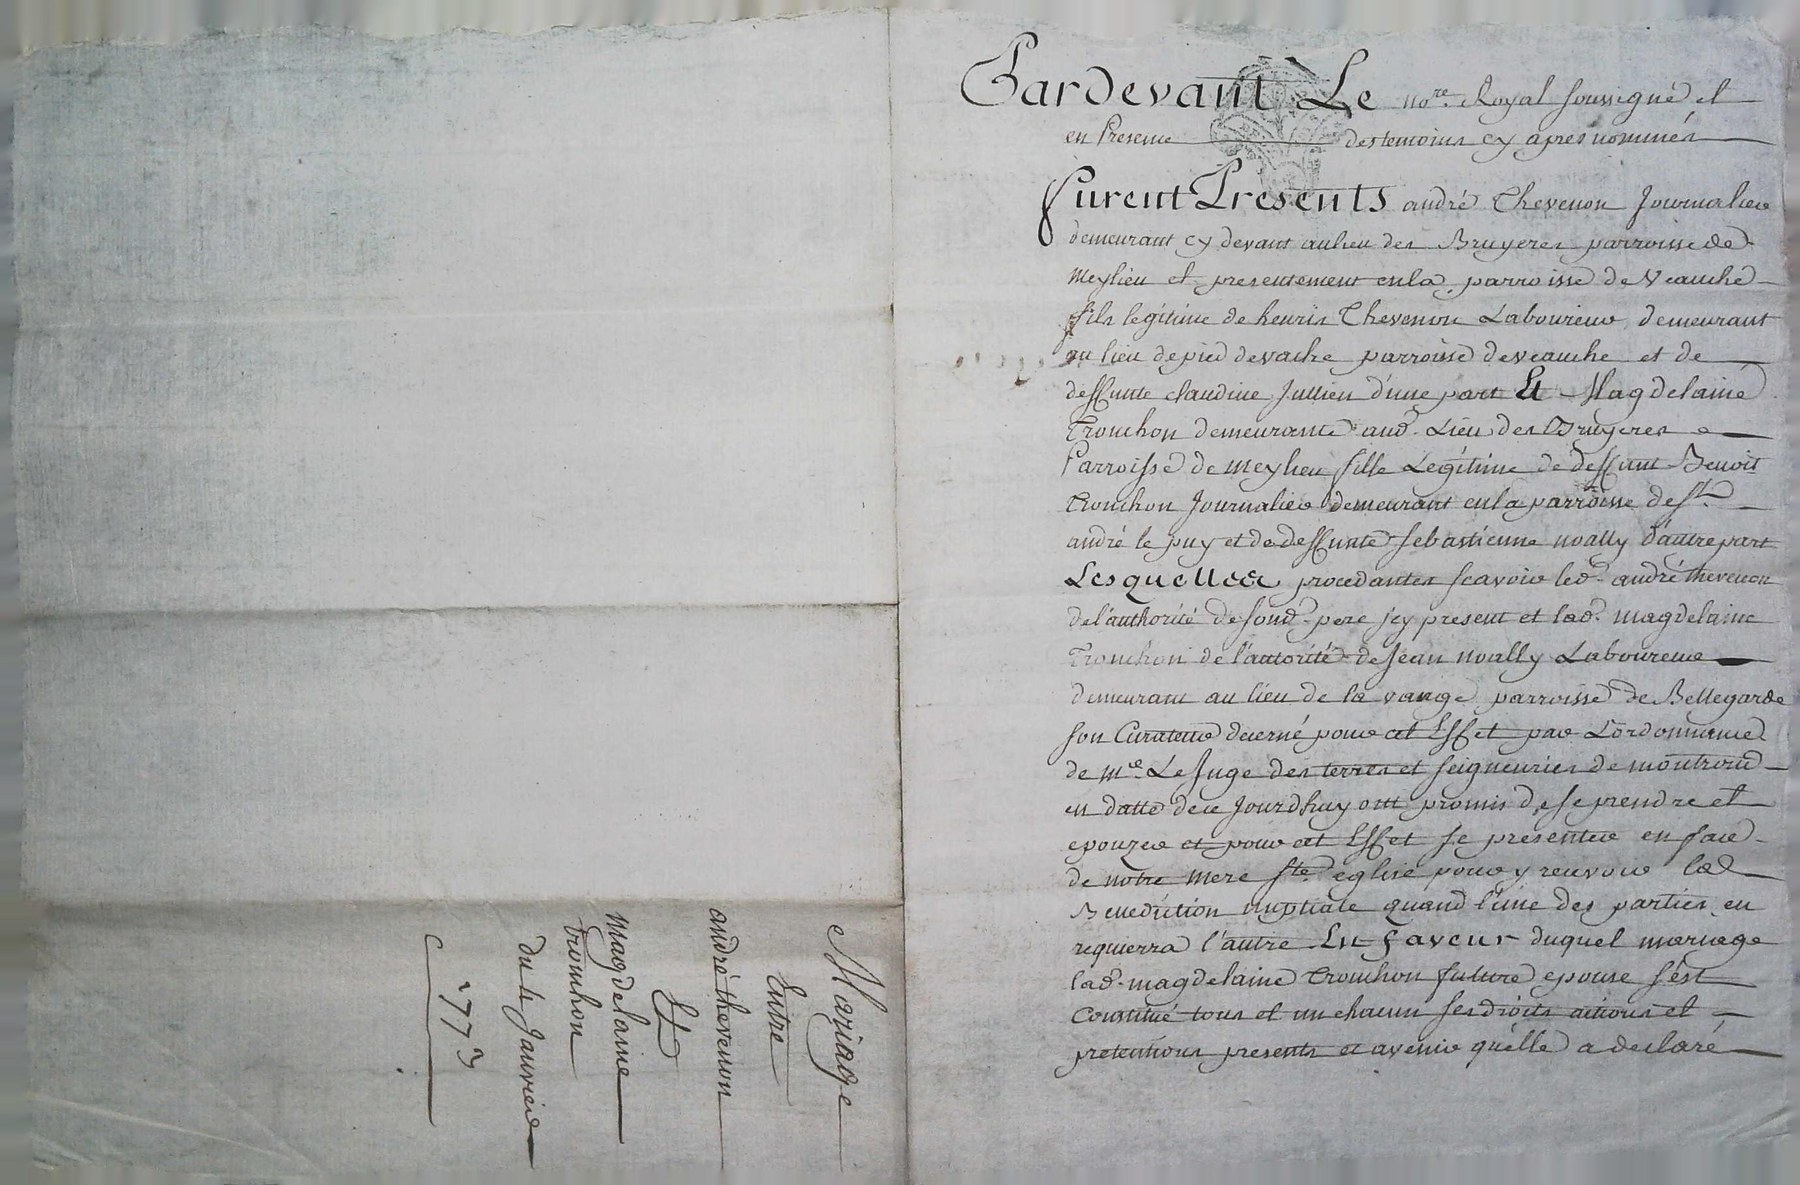 Pardevant Le no.re Royal soussigné et
en Presence des temoins cy apres nommés
furent Presents andré Thevenon Journalier
demeurant cy devant au lieu des Bruyeres parroisse de
meylieu et presentement en la parroisse de Veauche
fils legitime de henris Thevenon Laboureur demeurant
au lieu de pied devache parroisse de veauche et de
deffunte claudine Jullien d'une part Et Magdelaine
Tronchon demeurante aud. Lieu des Bruyeres
Parroisse de meylieu fille Legitime de deffunt Benoit
tronchon Journalier demeurant en la parroisse de St.
andré le puy et de deffunte sebastienne noally d'autre part
Lesquelles procedantes scavoir led. andré thevenon
de l'authorité de sond. pere icy present et lad. magdelaine
Tronchon de l'autorité de Jean noally Laboureur
demeurant au lieu de la vange parroisse de Bellegarde
son Curateur decerné pour cet Effet par L'ordonnance
de m.e Le Juge des terres et seigneuries de montrond
en datte de ce Jourdhuy ont promis de se prendre et
epouzer et pour cet Effet se presenter en face
de notre mere ste. eglise pour y recevoir la
Benediction nuptiale quand l'une des parties en
requierra l'autre En faveur duquel mariage
lad. magdelaine Tronchon future epouse s'est
Constitué tous et un chacun ses droits actions et
pretentions presents et avenir qu'elle a declaré
Mariage
Entre
andré thevenon
Et
Magdelaine
tronchon
du 4 Janvier
1773